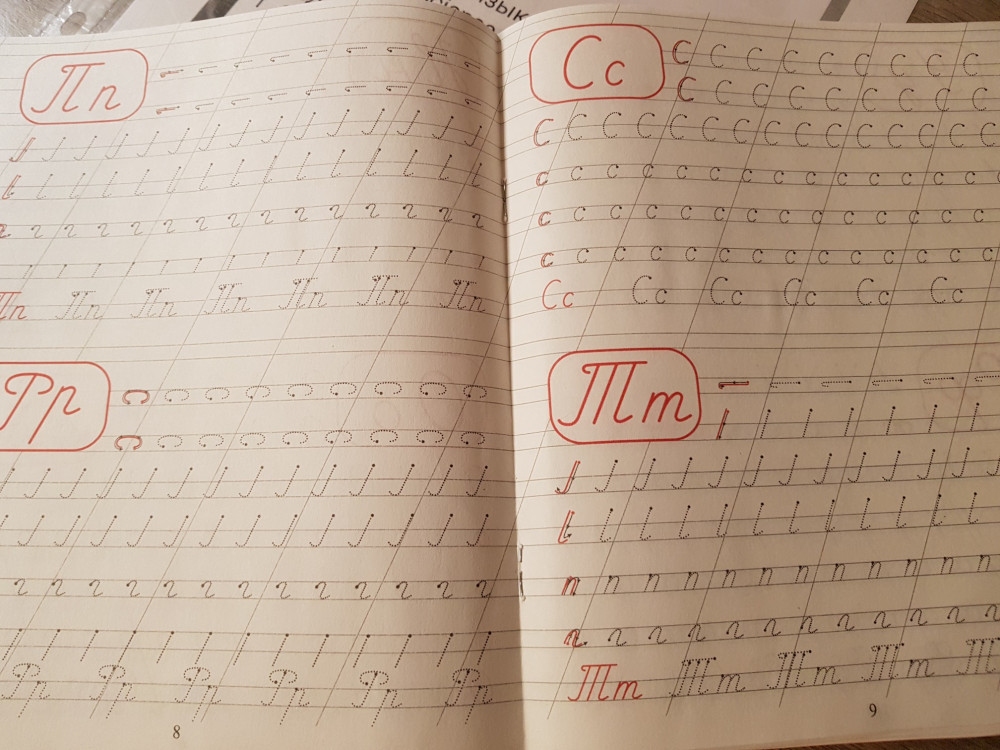 Пп
Пп Пп Пп Пп Пп Пп Пп
Рр
Рр Рр Рр Рр Рр Рр
8
зык
Сс
С С С С С С С С С
С С С С С С С С С
С С С С С С С С С С С С С С
с с с с с с с с с с с с с с
с с с с с с с с с с с с с
с с с с с с с с с с с с с
Сс Сс Сс Сс Сс Сс
Тт
п п п п п п п п п п п п
Тт Тт Тт Тт Т
9